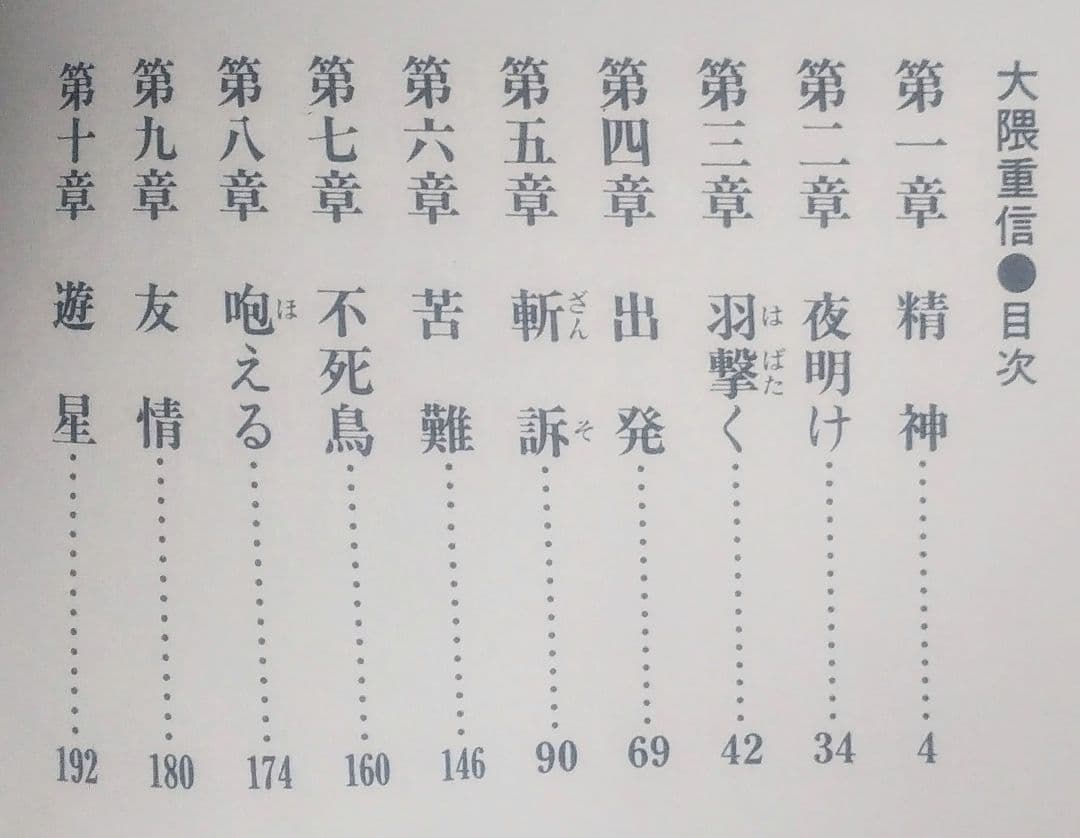 大隈重信●目次
第一章 精神……………4
第二章 夜明け……………34
第三章 羽撃く……………42
はばた
第四章 出発……………69
第五章 斬訴……………90
ざんそ
第六章 苦難……………146
第七章 不死鳥……………160
第八章 咆える……………174
ほ
第九章 友情……………180
第十章 遊星……………192